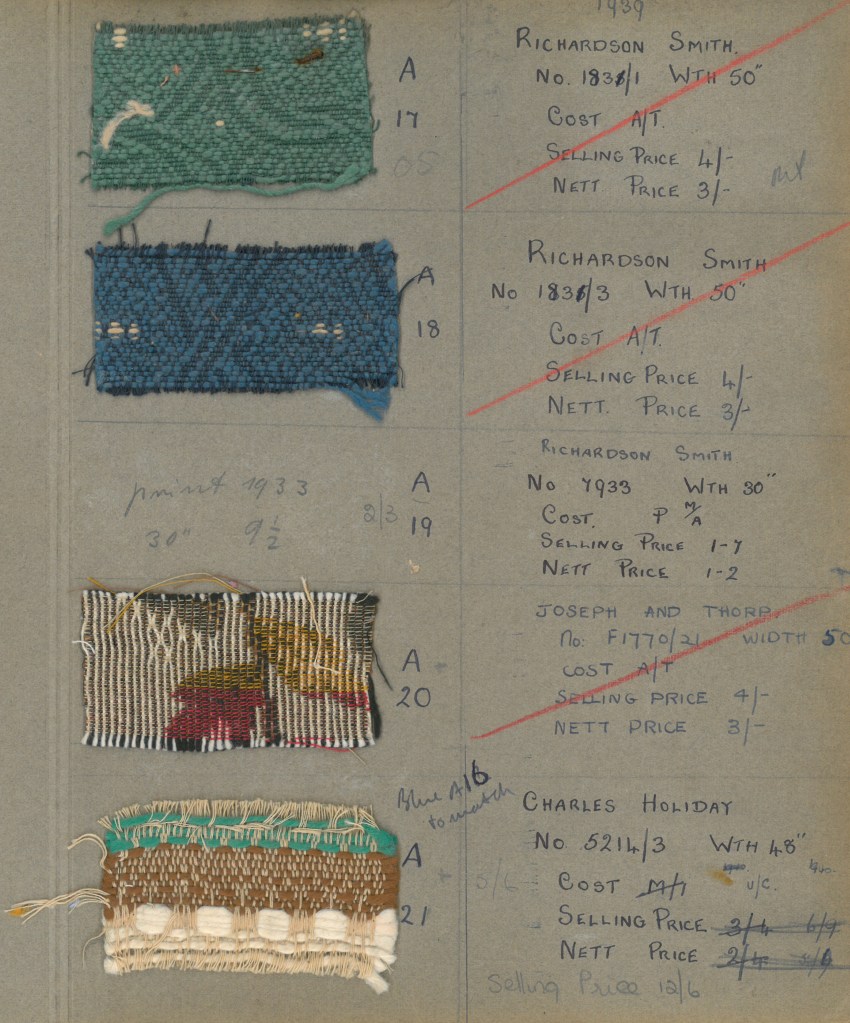 1939
A
17
RICHARDSON SMITH.
No. 1831/1 WTH 50"
COST A/T.
SELLING PRICE 4/-
NETT PRICE 3/-
A
18
RICHARDSON SMITH
No 1831/3 WTH 50"
COST A/T.
SELLING PRICE 4/-
NETT. PRICE 3/-
print 1933
30" 9½
2/3
A
19
RICHARDSON SMITH
No 7933 WTH 30"
COST. P M/A
SELLING PRICE 1-7
NETT PRICE 1-2
A
20
JOSEPH AND THORP.
No: F1770/21 WIDTH 50
COST A/T
SELLING PRICE 4/-
NETT PRICE 3/-
Blue A16
to match
A
21
5/6
CHARLES HOLIDAY
No 5214/3 WTH 48"
COST M/1 U/C.
SELLING PRICE 3/4 6/9
NETT PRICE 2/4
Selling Price 12/6